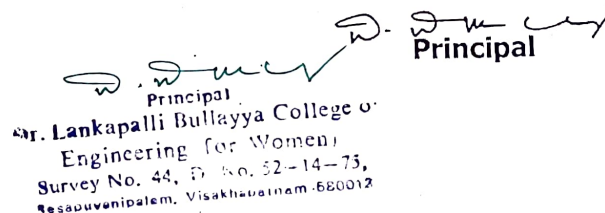 Principal
Principal
Dr. Lankapalli Bullayya College o
Engineering for Women,
Survey No. 44, D. No. 52-14-75,
Resapuvanipalem, Visakhapatnam-680012